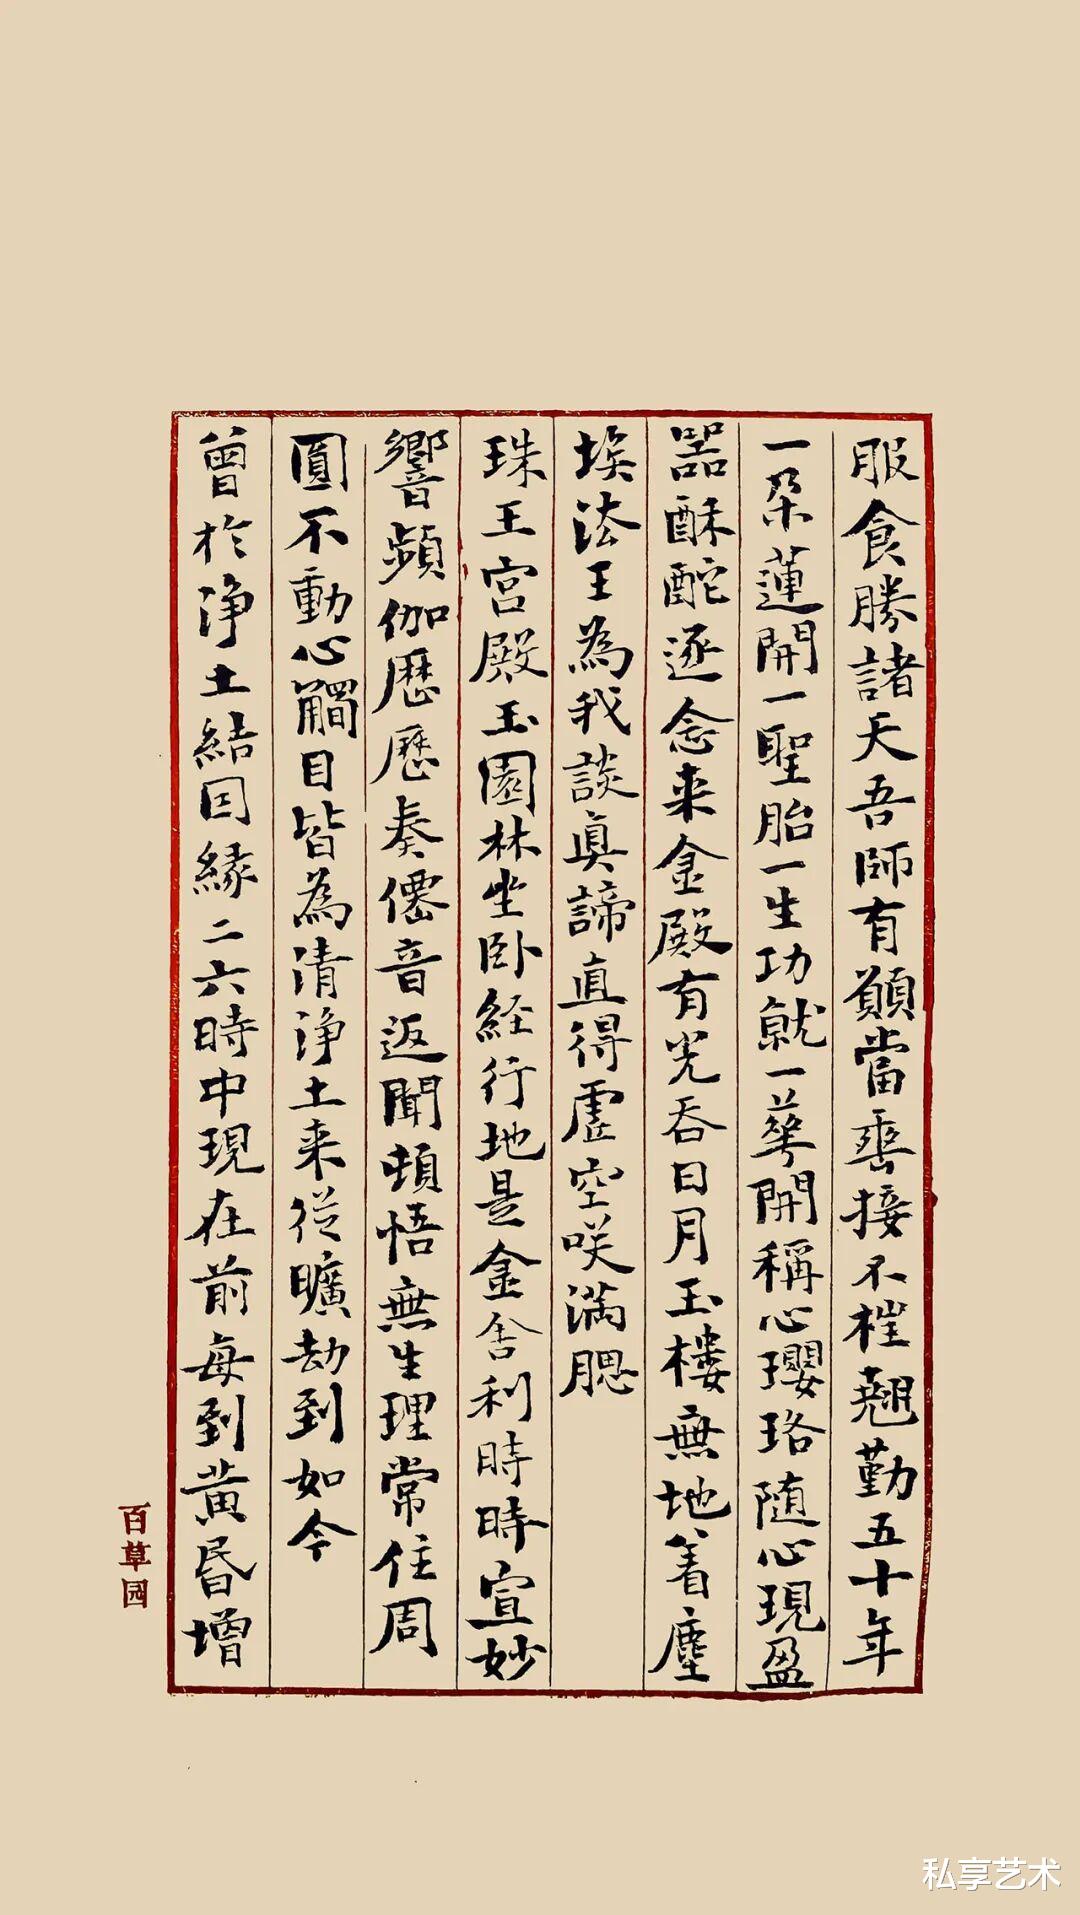 服食勝諸天吾師有願當垂接不權翹勤五十年
一朵蓮開一聖胎一生功就一華開稱心瓔珞隨心現盈
器酥酡逐念来金殿有光吞日月玉樓無地著塵
埃法王為我談真諦直得虛空咲滿腮
珠王宮殿玉園林坐卧経行地是金舍利時時宣妙
響頻伽歷歷奏僊音返聞頓悟無生理常住周
圓不動心觸目皆為清淨土来從曠劫到如今
曾於淨土結因緣二六時中現在前每到黃昏增
百草园
私享艺术